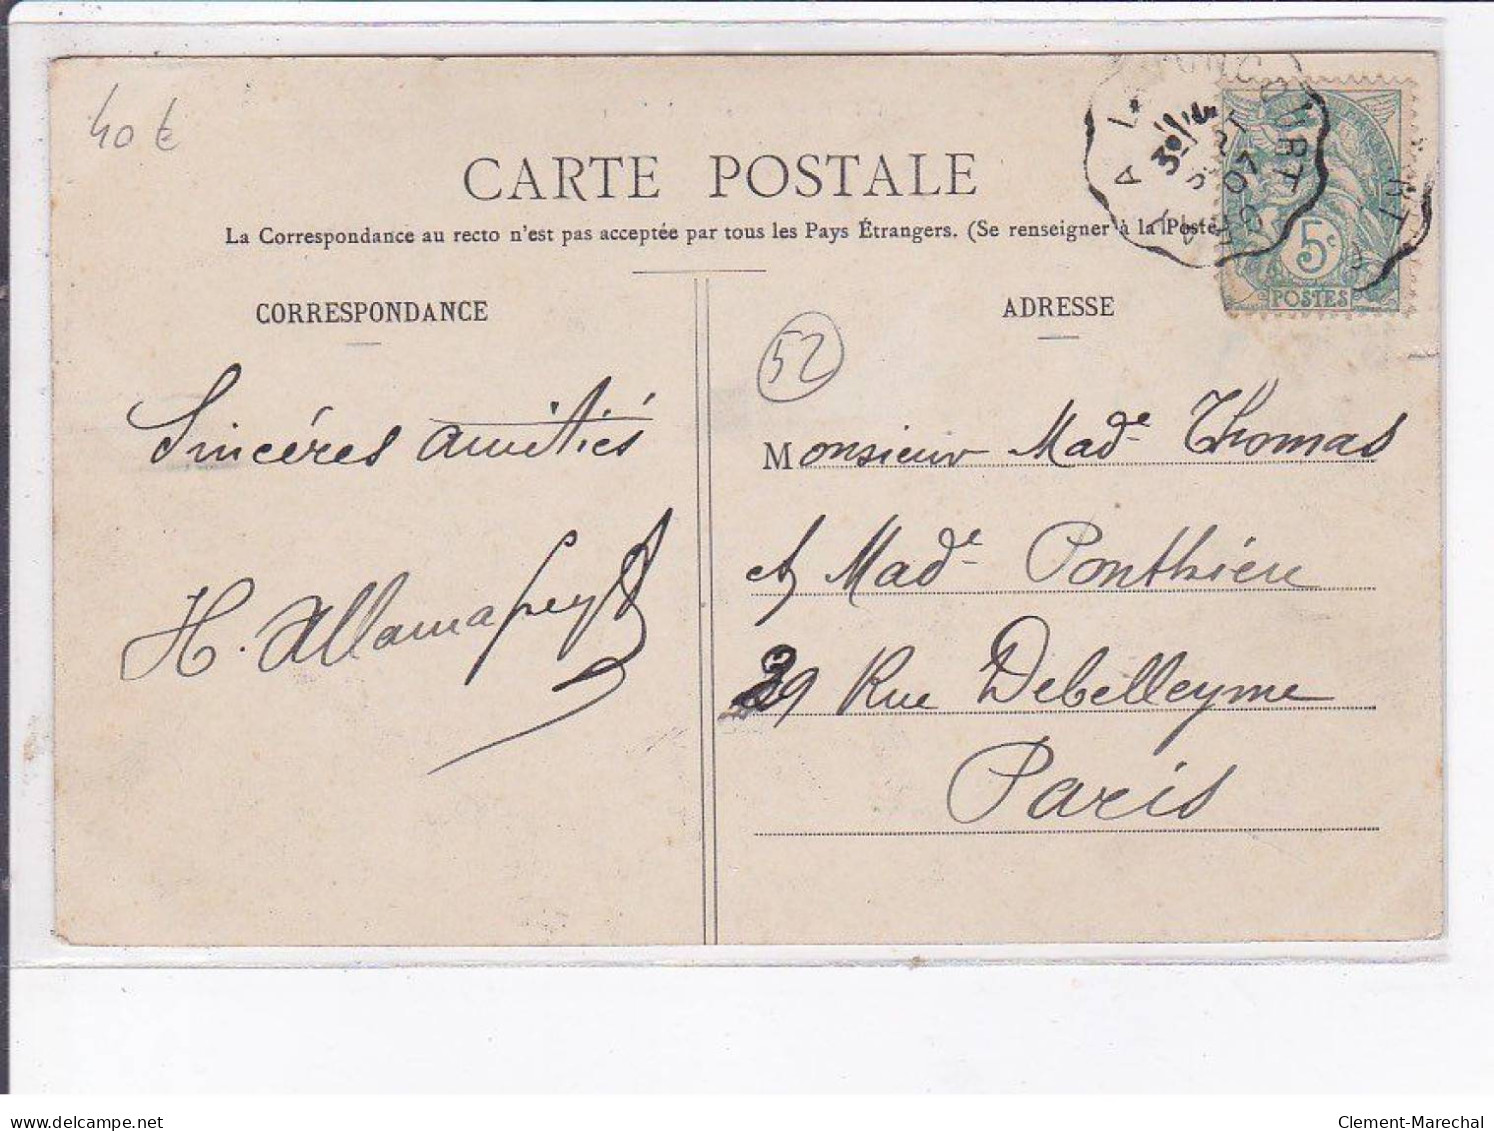 40 €
CARTE POSTALE
La Correspondance au recto n'est pas acceptée par tous les Pays Étrangers. (Se renseigner à la Poste
CORRESPONDANCE
ADRESSE
52
5c
POSTES
07
Sincéres amitiés
Monsieur Made Thomas
et Made Ponthieu
29 Rue Debelleyme
Paris
delcampe.net
Clement-Marechal